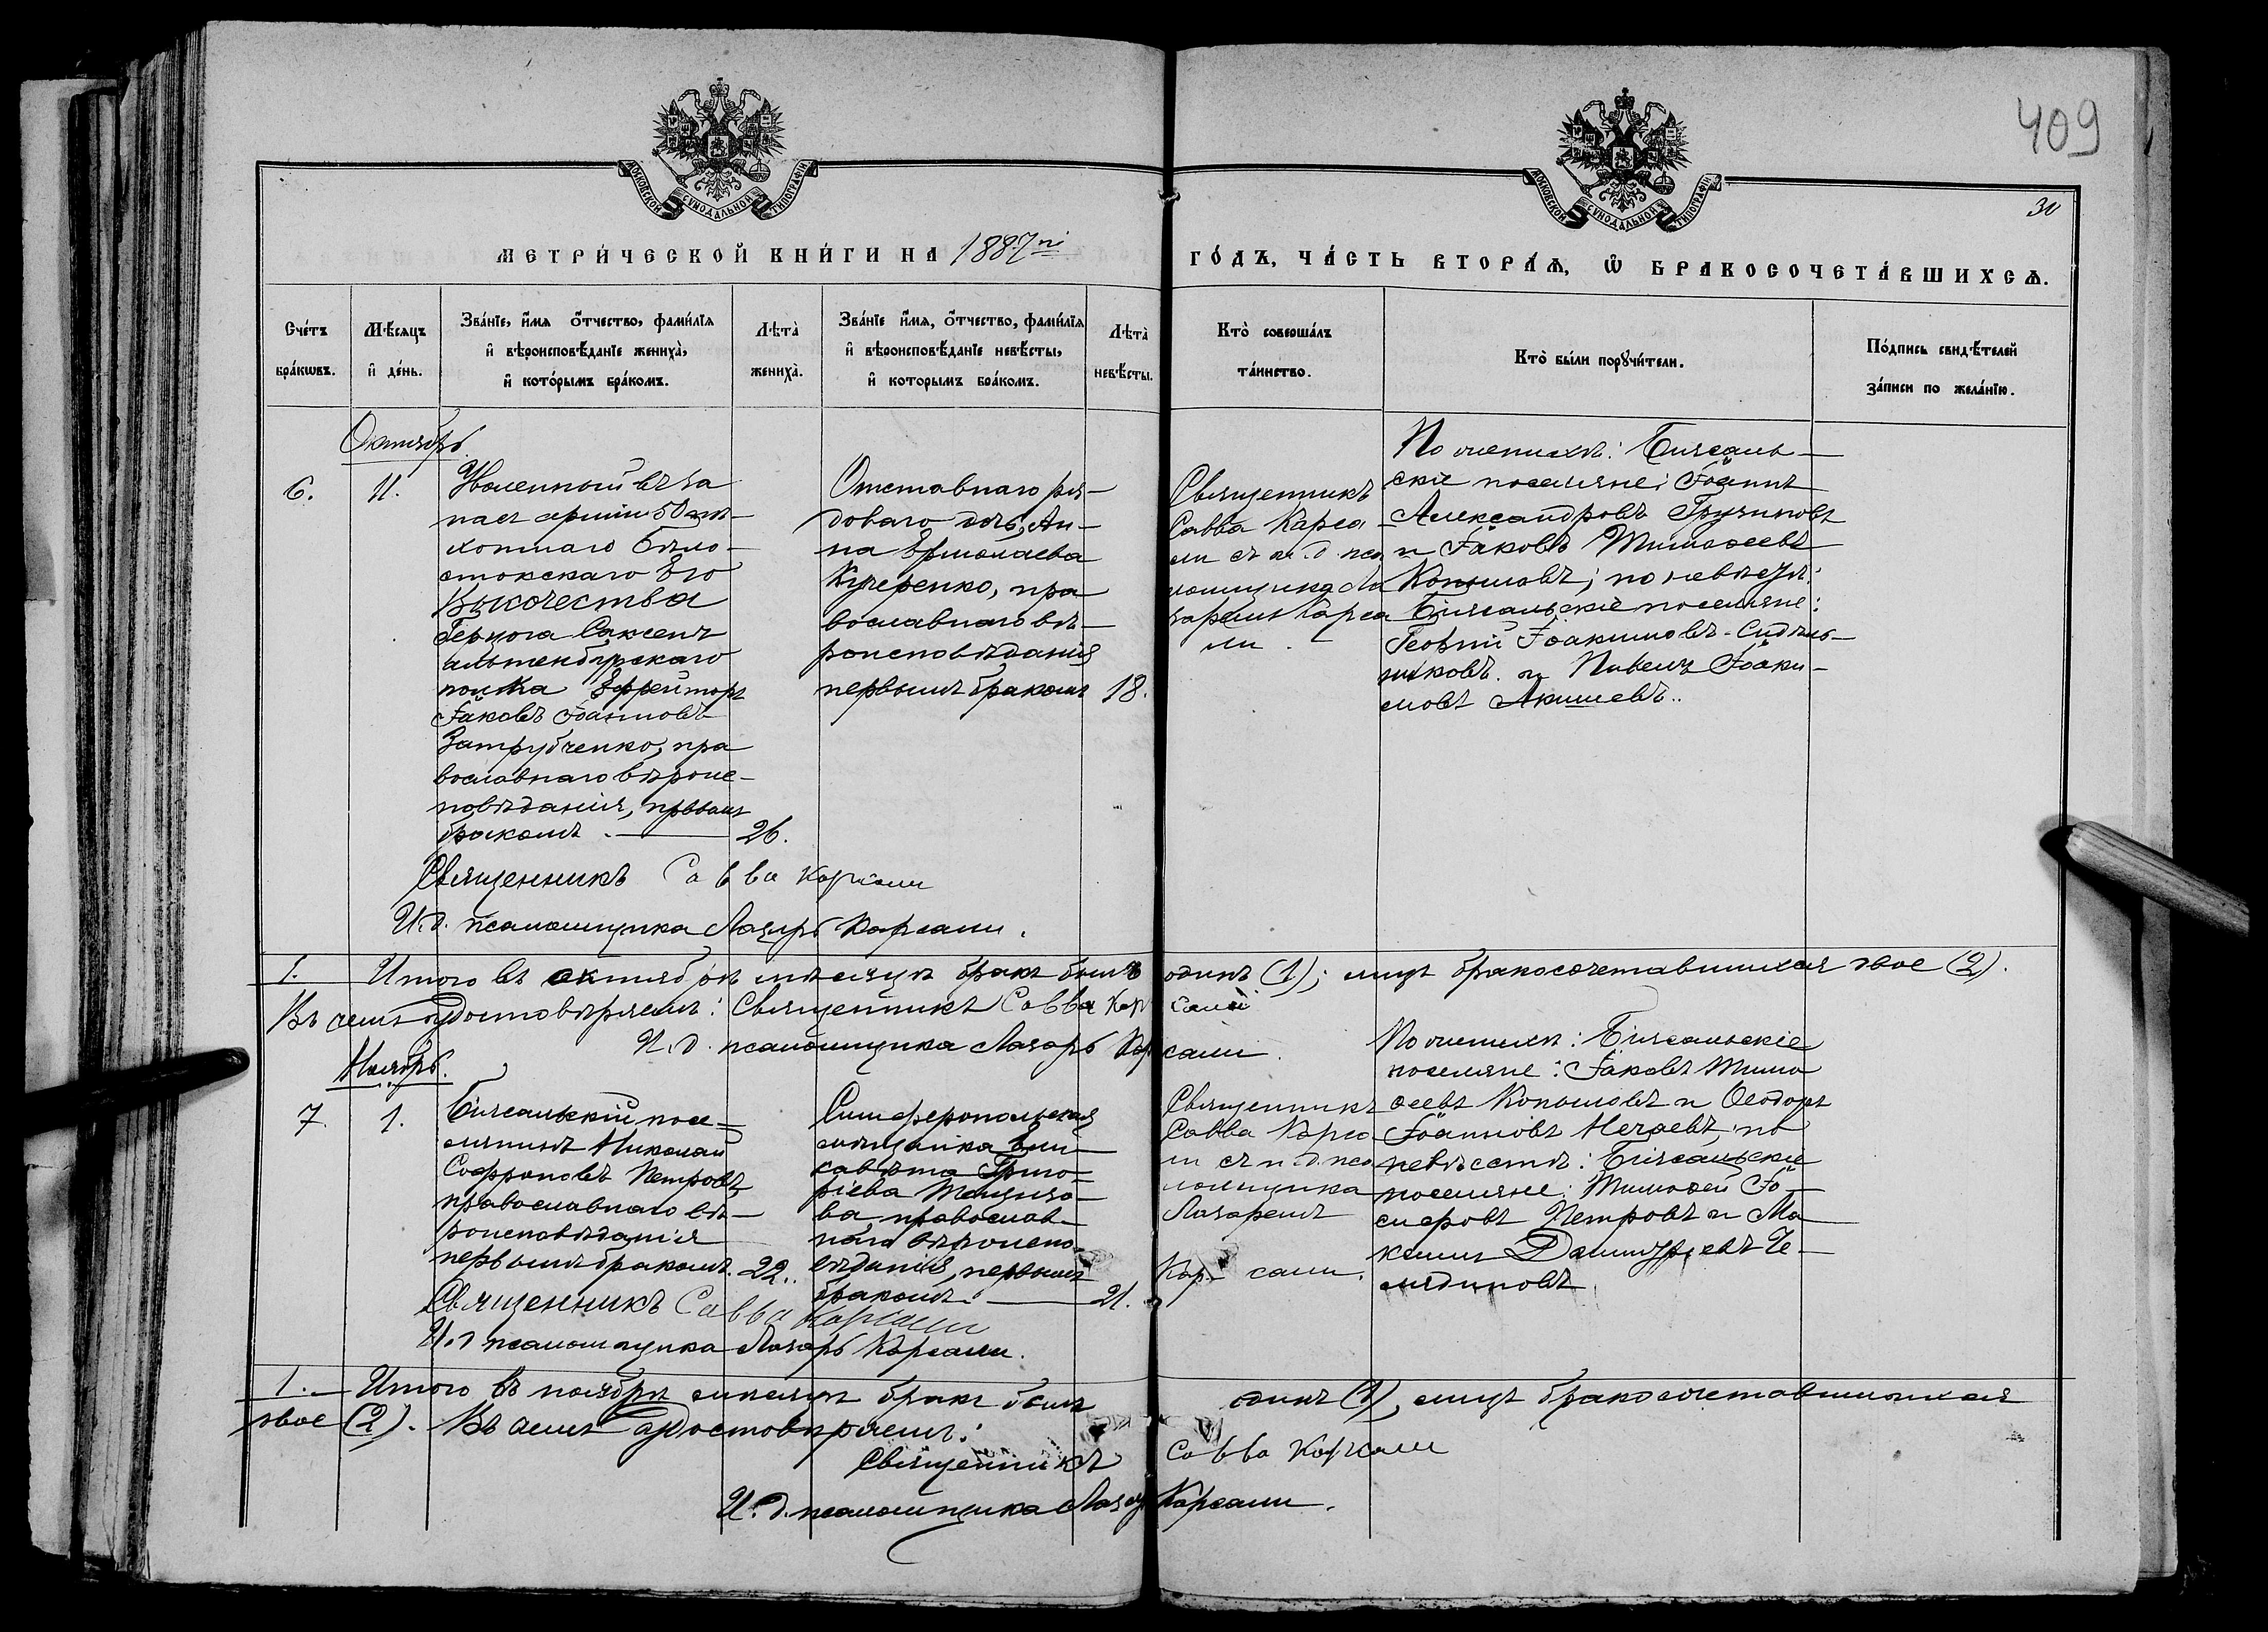 409
30
МОСКОВСКОЙ СУНОДАЛЬНОЙ ТИПОГРАФІИ
МОСКОВСКОЙ СУНОДАЛЬНОЙ ТИПОГРАФІИ
МЕТРИ́ЧЕСКОЙ КНИ́ГИ НА 1887й ГО́ДЪ, ЧА́СТЬ ВТОРА́Ѧ, Ѽ БРАКОСОЧЕТА́ВШИХСѦ.
Сче́тъ
бра́кѡвъ.
Мѣ́сѧцъ
и҆ де́нь.
Зва́нїе, и҆́мѧ ѻ҆́тчество, фами́лїѧ
и҆ вѣроисповѣ́данїе жениха̀,
и҆ кото́рымъ бра́комъ.
Лѣта̀
жениха̀.
Зва́нїе и҆́мѧ, ѻ҆́тчество, фами́лїѧ
и҆ вѣроисповѣ́данїе невѣ́сты,
и҆ которымъ бра́комъ.
Лѣта̀
невѣ́сты.
Кто̀ соверша́лъ
та́инство.
Кто̀ бы́ли порꙋчи́тели.
По́дпись свидѣ́телей
за́писи по жела́нїю.
Октябрь.
6.
11.
Уволенный въ за
пасъ арміи 50 пѣ-
хотнаго Бѣло-
стокскаго Его
Высочества
Герцога Саксенъ
альтенбургскаго
полка Ефрейторъ
Іаковъ Іоанновъ
Затрубченко, пра
вославнаго вѣроис-
повѣданія, первымъ
бракомъ. 26.
Отставнаго ря-
доваго дочь, Ан-
на Ермолаева
Кучеренко, пра
вославнаго вѣ-
роисповѣданія
первымъ бракомъ 18.
Священникъ
Савва Карса
ли съ и. д. пса
ломщика Ла
заремъ Карса
ли.
По женихѣ: Біясаль-
скіе поселяне: Іоаннъ
Александровъ Грузиновъ
и Іаковъ Тимоѳеевъ
Копыловъ; по невѣстѣ:
Біясальскіе поселяне:
Георгій Іоакимовъ Сидѣль-
никовъ и Павелъ Іоаки-
мовъ Акишевъ..
Священникъ Савва Карсали
И.д. псаломщика Лазарь Карсали.
1. Итого въ октябрѣ мѣсяцѣ бракъ былъ одинъ (1); лицъ бракосочетавшихся двое (2).
Въ чемъ удостовѣряемъ: Священникъ Савва Карсали
И.д. псаломщика Лазарь Карсали.
Ноябрь.
7.
1.
Біясальскій посе-
лянинъ Николай
Софроновъ Петровъ,
православнаго вѣ-
роисповѣданія
первымъ бракомъ. 22.
Симферопольская
мѣщанка Ели-
савета Григо-
ріева
ва, православ-
наго вѣроиспо-
вѣданія, первымъ
бракомъ. 21.
Священникъ
Савва Карса
ли съ и. д. пса
ломщика
Лазаремъ
Карсали.
По женихѣ: Біясальскіе
поселяне: Іаковъ Тимо
ѳеевъ Копыловъ и Ѳеодоръ
Іоанновъ Нечаевъ; по
невѣстѣ: Біясальскіе
поселяне: Тимоѳей Іо-
сифовъ Петровъ и Ма
ксимъ Димитріевъ Че-
лядиновъ.
Священникъ Савва Карсали
И.д псаломщика Лазарь Карсали.
1. Итого въ ноябрѣ мѣсяцѣ бракъ былъ одинъ (1), лицъ бракосочетавшихся
двое (2). Въ чемъ удостовѣряемъ:
Священникъ Савва Карсали
И.д. псаломщика Лазарь Карсали.